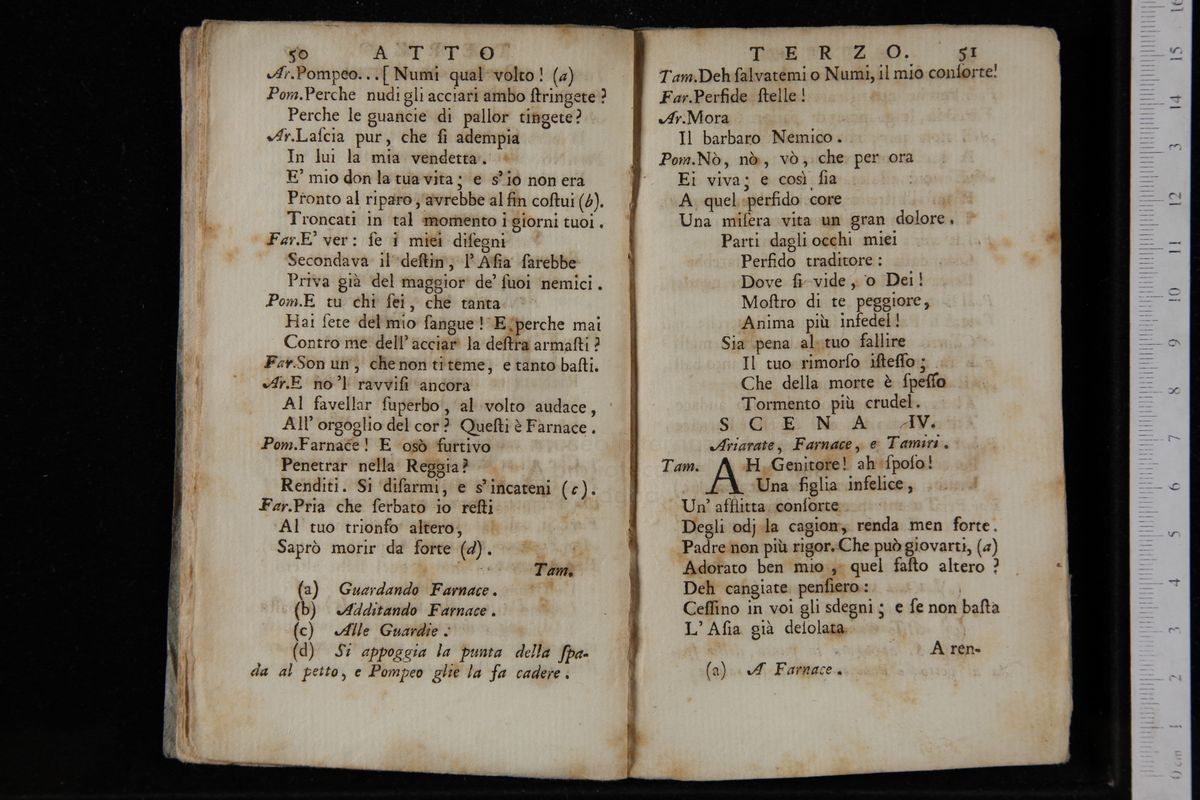 50 ATTO
Ar.Pompeo...[Numi qual volto! (a)
Pom.Perche nudi gli acciari ambo ſtringete?
Perche le guancie di pallor tingete?
Ar.Laſcia pur, che ſi adempia
In lui la mia vendetta.
E' mio don la tua vita; e s'io non era
Pronto al riparo, avrebbe al fin coſtui (b).
Troncati in tal momento i giorni tuoi.
Far.E' ver: ſe i miei diſegni
Secondava il deſtin, l'Aſia ſarebbe
Priva già del maggior de' ſuoi nemici.
Pom.E tu chi ſei, che tanta
Hai ſete del mio ſangue! E perche mai
Contro me dell' acciar la deſtra armaſti?
Far.Son un, che non ti teme, e tanto baſti.
Ar.E no 'l ravviſi ancora
Al favellar ſuperbo, al volto audace,
All' orgoglio del cor? Queſti è Farnace.
Pom.Farnace! E osò furtivo
Penetrar nella Reggia?
Renditi. Si diſarmi, e s'incateni (c).
Far.Pria che ſerbato io reſti
Al tuo trionfo altero,
Saprò morir da forte (d).
Tam.
(a) Guardando Farnace.
(b) Additando Farnace.
(c) Alle Guardie.
(d) Si appoggia la punta della ſpa-
da al petto, e Pompeo glie la fa cadere.
TERZO. 51
Tam.Deh ſalvatemi o Numi, il mio conſorte!
Far.Perfide ſtelle!
Ar.Mora
Il barbaro Nemico.
Pom.Nò, nò, vò, che per ora
Ei viva; e così ſia
A quel perfido core
Una miſera vita un gran dolore.
Parti dagli occhi miei
Perfido traditore:
Dove ſi vide, o Dei!
Moſtro di te peggiore,
Anima più infedel!
Sia pena al tuo fallire
Il tuo rimorſo iſteſſo;
Che della morte è ſpeſſo
Tormento più crudel.
SCENA IV.
Ariarate, Farnace, e Tamiri.
Tam. AH Genitore! ah ſpoſo!
Una figlia infelice,
Un' afflitta conſorte
Degli odj la cagion, renda men forte.
Padre non più rigor. Che può giovarti, (a)
Adorato ben mio, quel faſto altero?
Deh cangiate penſiero:
Ceſſino in voi gli sdegni; e ſe non baſta
L' Aſia già deſolata
A ren-
(a) A Farnace.